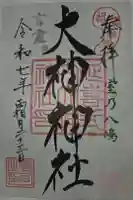 奉拝 室乃八嶋
大神神社
令和七年 霜月二十三日